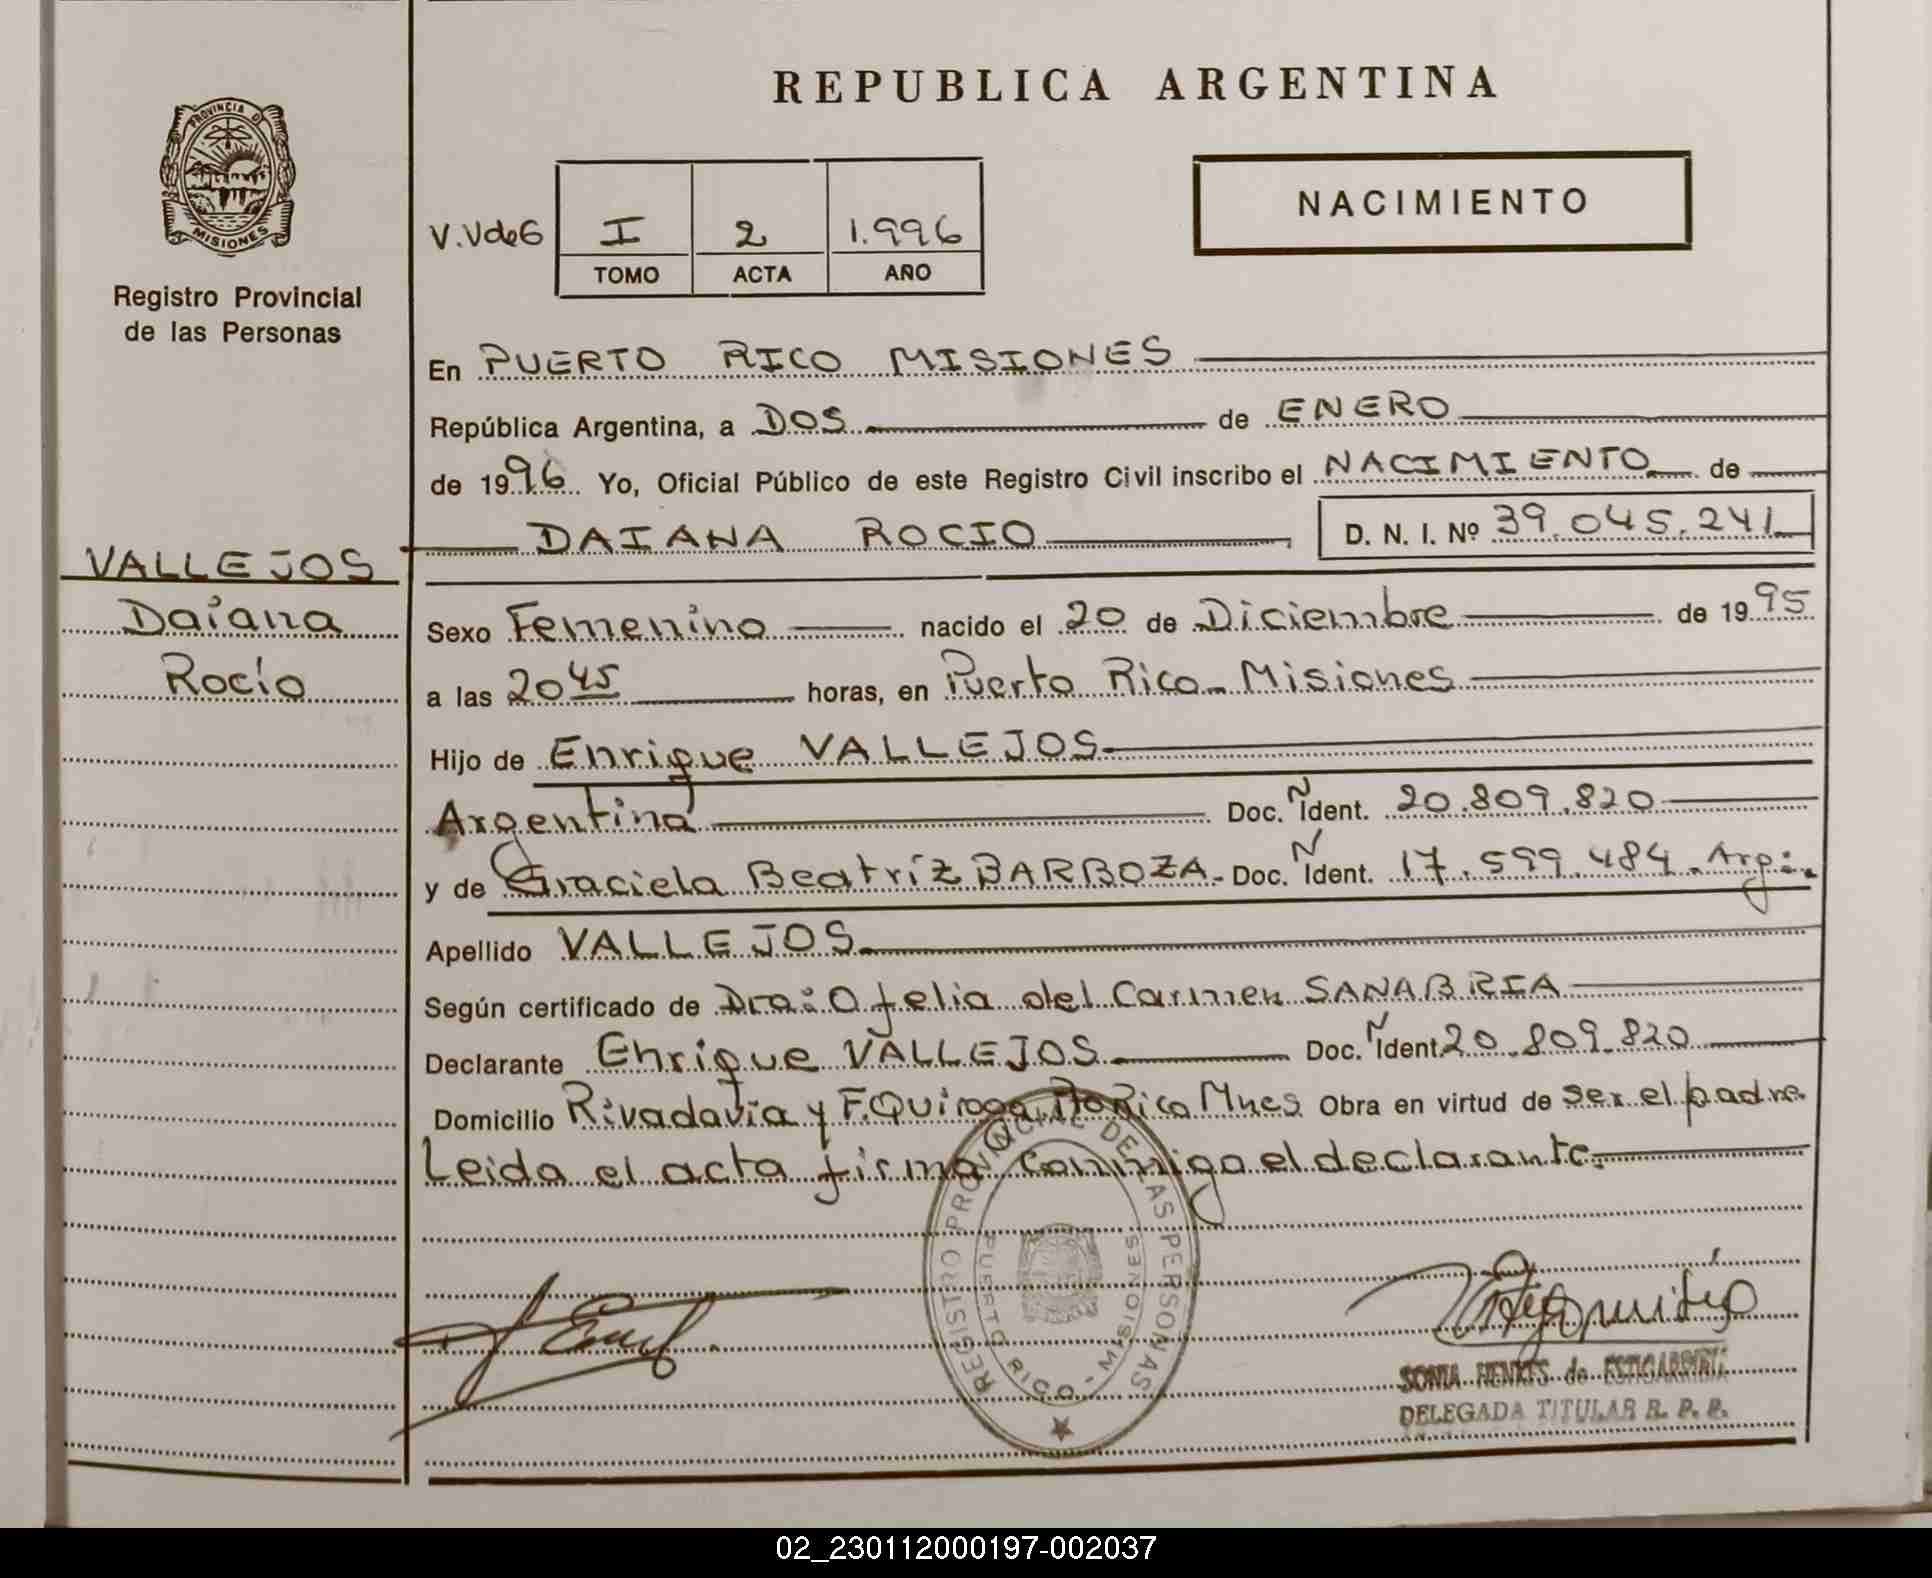 REPUBLICA ARGENTINA
PROVINCIA D
MISIONES
Registro Provincial
de las Personas
NACIMIENTO
V.VdeG I 2 1.996
TOMO ACTA AÑO
En PUERTO RICO MISIONES
República Argentina, a DOS de ENERO
de 1996 Yo, Oficial Público de este Registro Civil inscribo el NACIMIENTO de
DAIANA ROCIO D. N. I. Nº 39.045.241
VALLEJOS
Daiana
Rocío
Sexo Femenino nacido el 20 de Diciembre de 1995
a las 20 45 horas, en Puerto Rico - Misiones
Hijo de Enrique VALLEJOS
Argentina Doc. N Ident. 20.809.820
y de Graciela Beatríz BARBOZA - Doc. N Ident. 17.599.484. Arg:.
Apellido VALLEJOS
Según certificado de Dra: Ofelia del Carmen SANABRIA
Declarante Enrique VALLEJOS Doc. N Ident 20.809.820
Domicilio Rivadavia y F. Quiroga Pto Rico Mnes Obra en virtud de ser el padre.
Leida el acta firma conmigo el declarante.
REGISTRO PROVINCIAL DE LAS PERSONAS
PUERTO RICO - MISIONES
SONIA HENKES de ESTIGARRIBIA
DELEGADA TITULAR R. P. P.
02_230112000197-002037